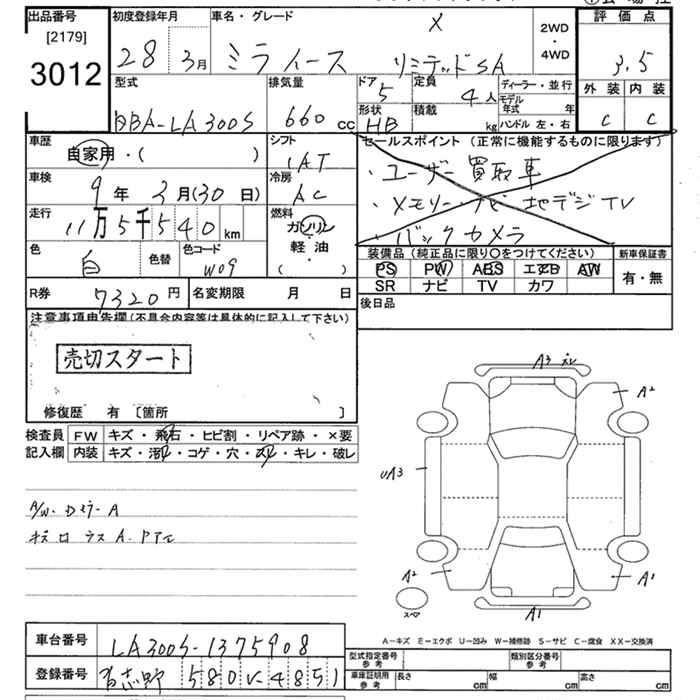 出品番号
[2179]
3012
初度登録年月
28 3月
車名・グレード
X
ミライース リミテッドSA
2WD
・
4WD
評価点
3.5
外装 内装
C C
型式
DBA-LA300S
排気量
660 cc
ドア
5
定員
4人
ディーラー・並行
モデル年式 年
形状
HB
積載 kg
ハンドル 左・右
車歴
自家用・( )
シフト
IAT
セールスポイント (正常に機能するものに限ります)
・ユーザー買取車
・メモリーナビ 地デジTV
・バックカメラ
車検
9年3月(30日)
冷房
AC
走行
11万5千540km
燃料
ガソリン
軽・油
( ・ )
色
白
色替
色コード
W09
装備品 (純正品に限り○をつけてください)
PS PW ABS エアB AW
SR ナビ TV カワ
新車保証書
有・無
R券
7320円
名変期限 月 日
後日品
注意事項申告欄(不具合内容等は具体的に記入して下さい)
売切スタート
修復歴 有 [箇所 ]
検査員
記入欄
FW キズ・飛石・ヒビ割・リペア跡・×要
内装 キズ・汚レ・コゲ・穴・スレ・キレ・破レ
A3
A2
UA3
A2
A1
A1
スペア
A-キズ E-エクボ U-凹み W-補修跡 S-サビ C-腐食 XX-交換済
車台番号
LA300S-1375908
登録番号
習志野 580 い 4851
型式指定番号
参考
類別区分番号
参考
車庫証明用
参考
長さ cm
幅 cm
高さ cm